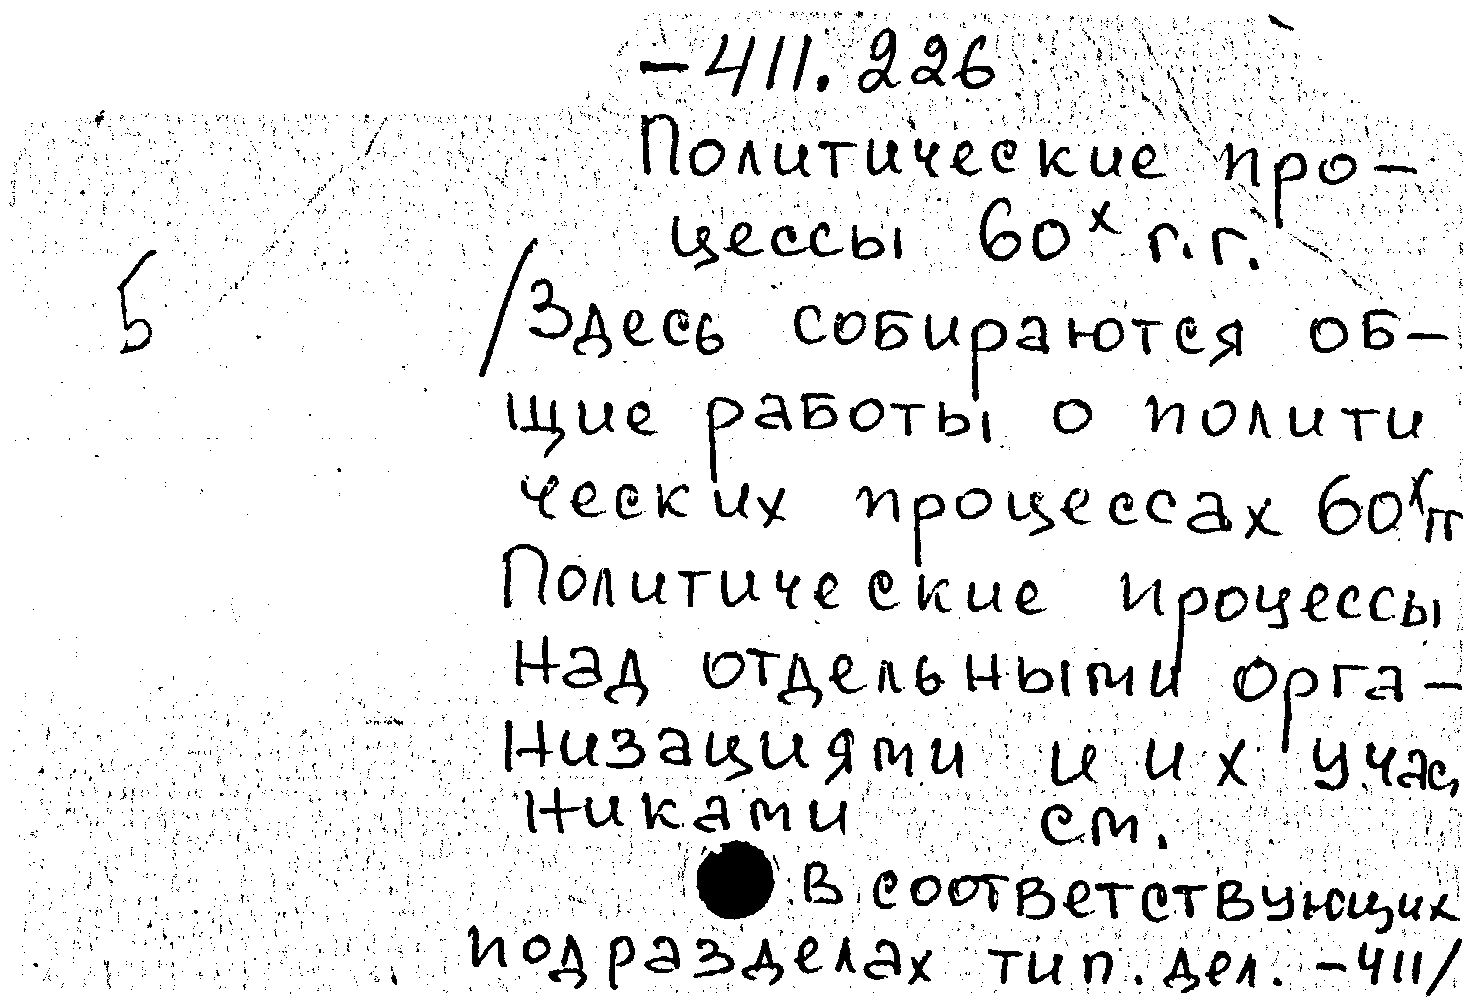 -411.226
Политические про-
цессы 60х г.г.
Б
/Здесь собираются об-
щие работы о полити
ческих процессах 60х гг
Политические процессы
над отдельными орга-
низациями и их учас
никами см.
в соответствующих
подразделах тип. дел. -411/